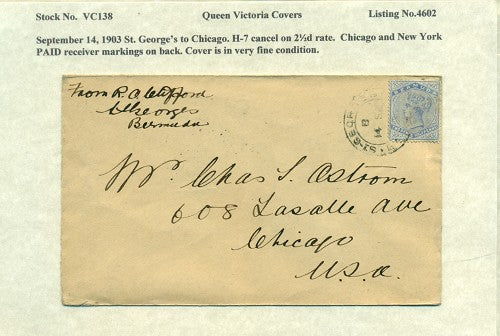 Stock No. VC138 Queen Victoria Covers Listing No.4602
September 14, 1903 St. George's to Chicago. H-7 cancel on 2½d rate. Chicago and New York
PAID receiver markings on back. Cover is in very fine condition.
From R. A. Clifford
St Georges
Bermuda
Mr. Chas S. Ostrom
608 Lasalle Ave
Chicago
U.S.A.